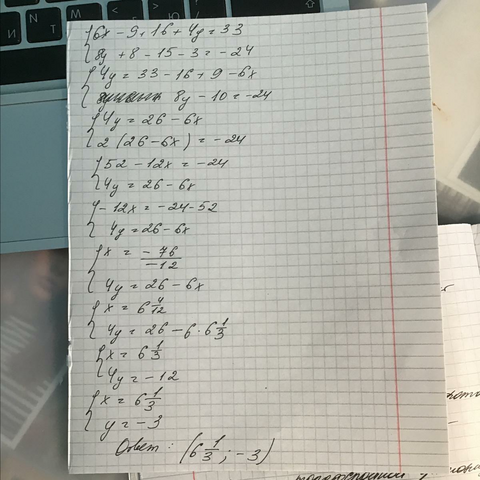 {6x - 9 + 16 + 4y = 33
{8y + 8 - 15 - 3 = -24
{4y = 33 - 16 + 9 - 6x
{8y - 10 = -24
{4y = 26 - 6x
{2(26 - 6x) = -24
{52 - 12x = -24
{4y = 26 - 6x
{-12x = -24 - 52
{4y = 26 - 6x
{x = -76/-12
{4y = 26 - 6x
{x = 6 4/12
{4y = 26 - 6 · 6 1/3
{x = 6 1/3
{4y = -12
{x = 6 1/3
{y = -3
Ответ: (6 1/3; -3)